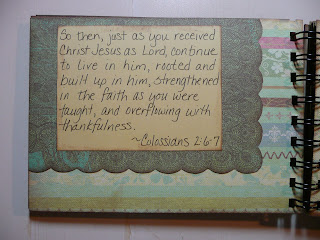 So then, just as you received
Christ Jesus as Lord, continue
to live in him, rooted and
built up in him, strengthened
in the faith as you were
taught, and overflowing with
thankfulness.
~Colossians 2:6-7